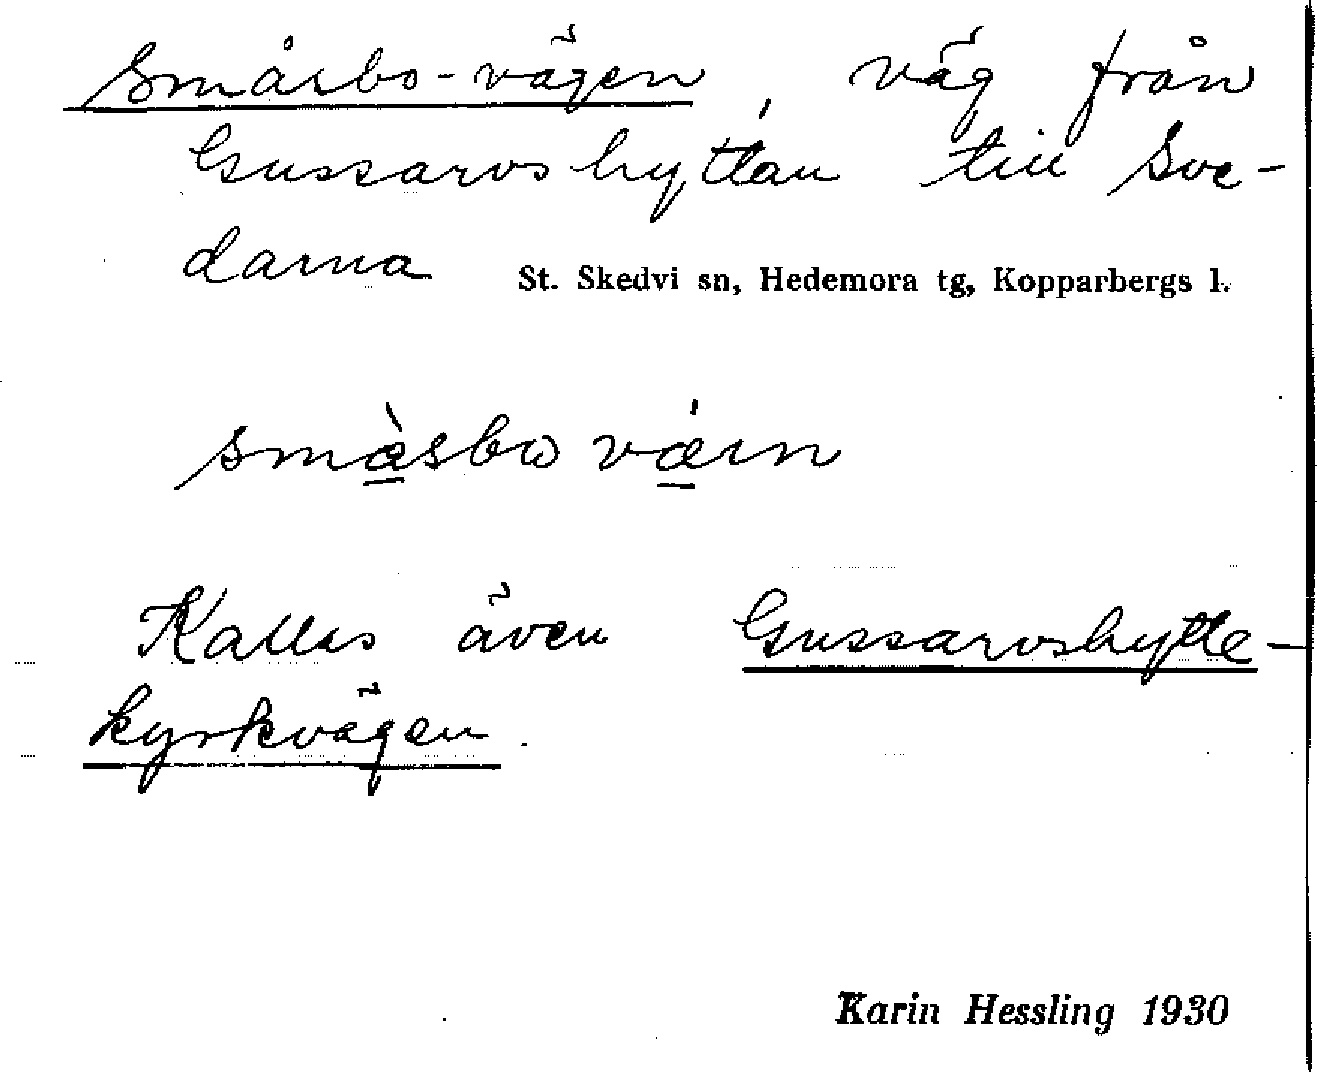 Småsbo-vägen, väg från
Gussarvshyttan till Sve-
darna St. Skedvi sn, Hedemora tg, Kopparbergs l.
smàsbω váın
Kallas även Gussarvshytte-
kyrkvägen.
Karin Hessling 1930